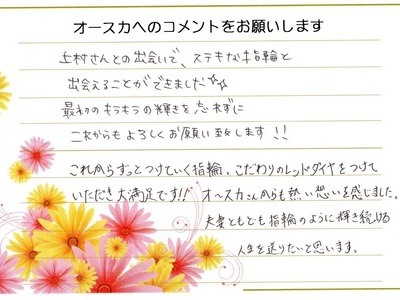 オースカへのコメントをお願いします
上村さんとの出会いで、ステキな指輪と
出会えることができました☆☆
最初のキラキラの輝きを忘れずに
これからもよろしくお願い致します!!
これからずっとつけていく指輪、こだわりのレッドダイヤをつけて
いただき大満足です!! オースカさんからも熱い想いを感じました。
夫妻ともども指輪のように輝き続ける
人生を送りたいと思います。